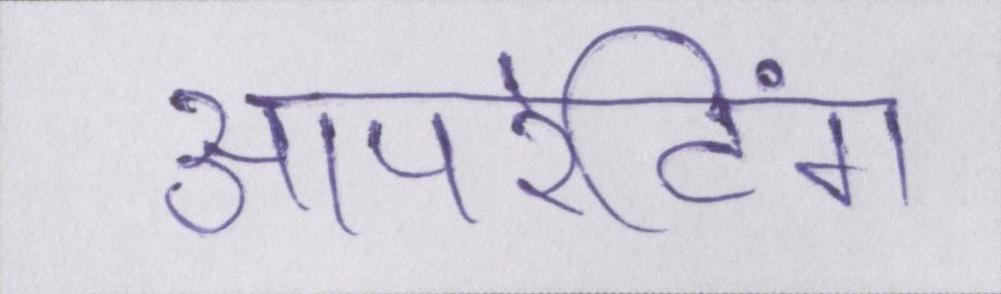 आपरेटिंग